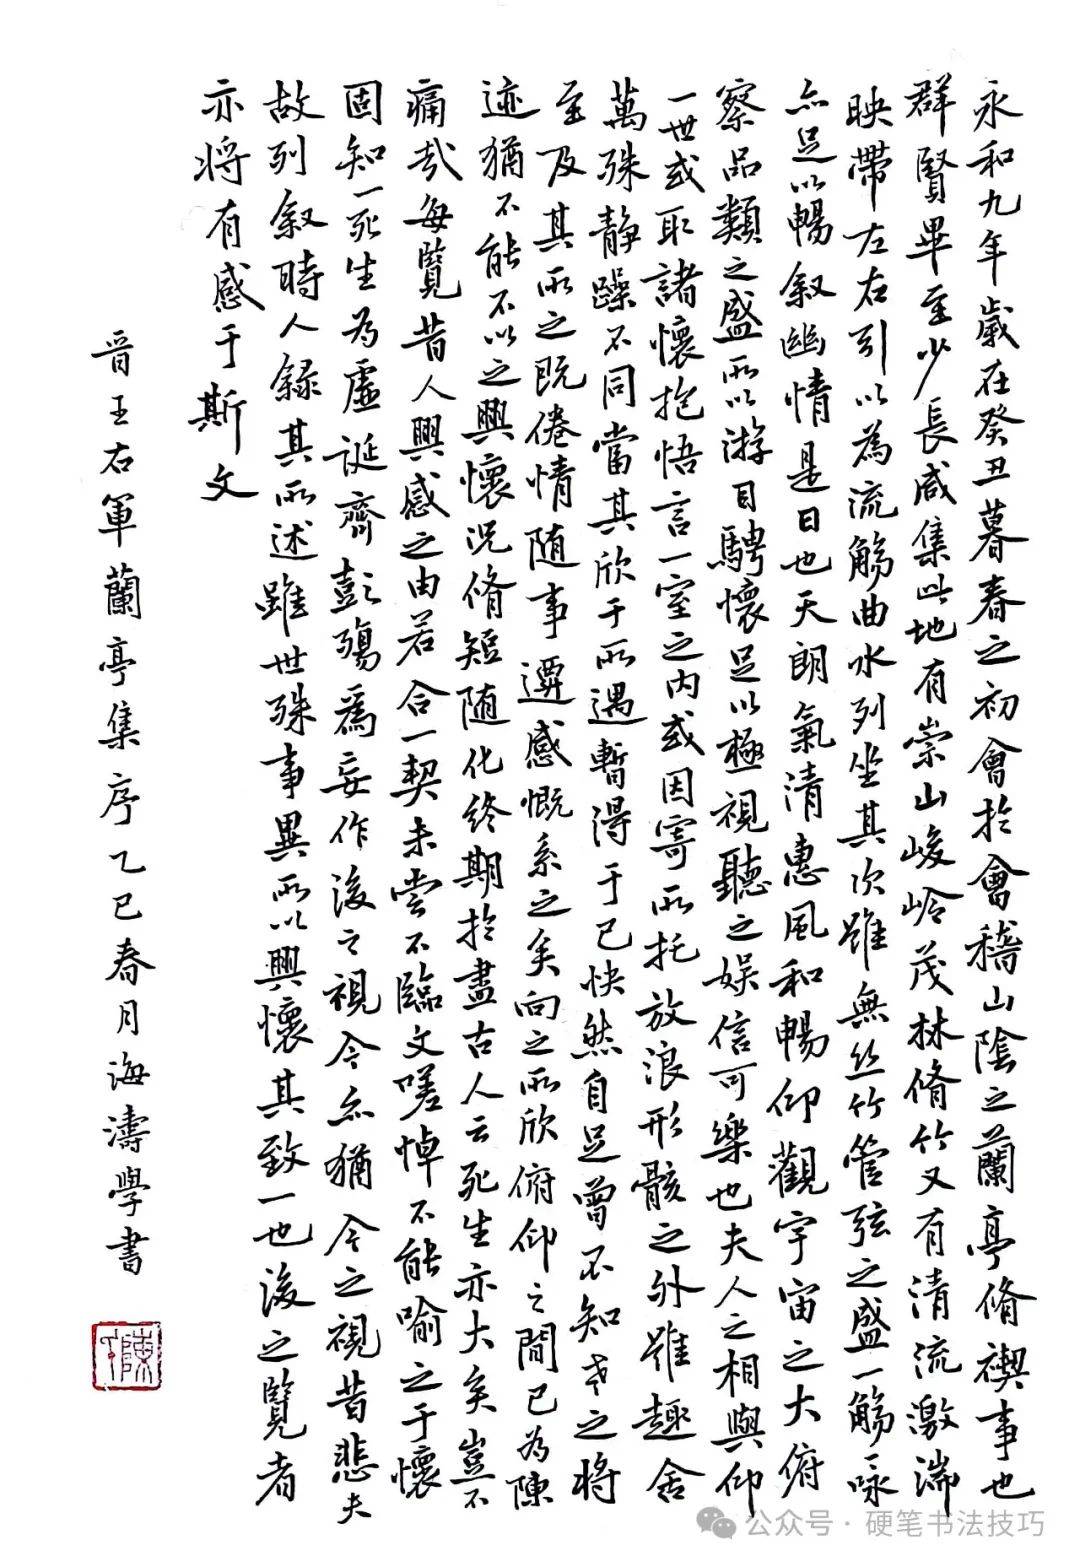 永和九年歲在癸丑暮春之初會於會稽山陰之蘭亭脩禊事也
群賢畢至少長咸集此地有崇山峻岭茂林脩竹又有清流激湍
映帶左右引以為流觴曲水列坐其次雖無丝竹管弦之盛一觴一詠
亦足以暢叙幽情是日也天朗氣清惠風和暢仰觀宇宙之大俯
察品類之盛所以游目騁懷足以極視聽之娱信可樂也夫人之相與仰
一世或取諸懷抱悟言一室之内或因寄所托放浪形骸之外雖趣舍
萬殊静躁不同當其欣于所遇暫得于己快然自足曾不知老之將
至及其所之既倦情随事遷感慨系之矣向之所欣俯仰之間已為陳
迹猶不能不以之興懷況脩短随化終期於盡古人云死生亦大矣豈不
痛哉每覽昔人興感之由若合一契未嘗不臨文嗟悼不能喻之于懷
固知一死生為虛誕齊彭殤爲妄作後之視今亦猶今之視昔悲夫
故列叙時人録其所述雖世殊事異所以興懷其致一也後之覽者
亦將有感于斯文
晋王右軍蘭亭集序乙巳春月海濤學書
公众号·硬笔书法技巧